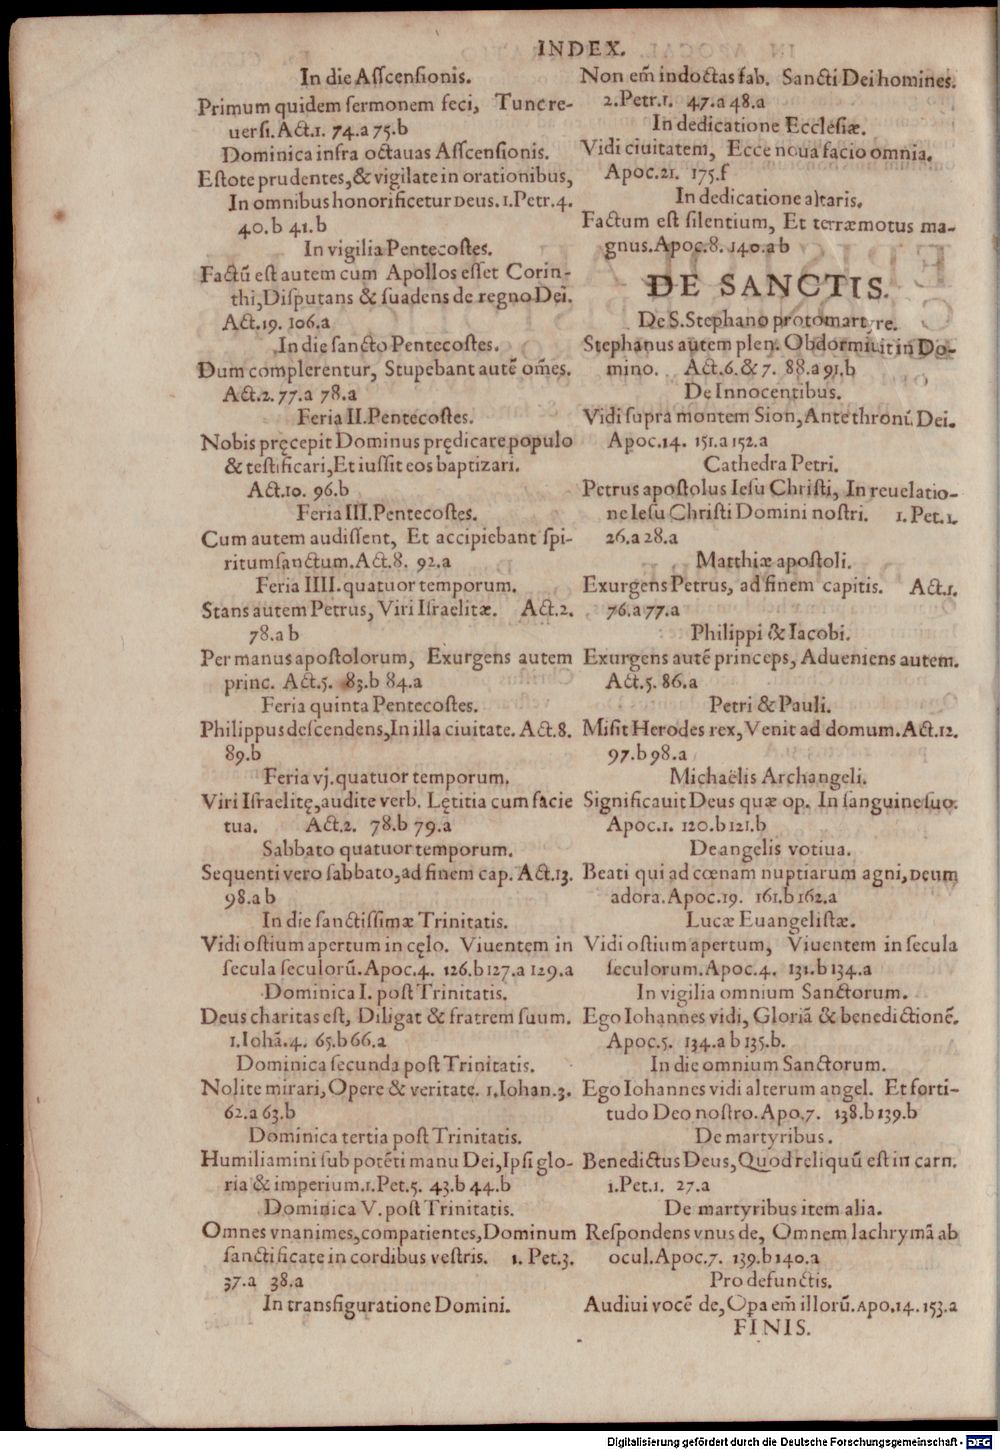 INDEX.
In die Aſſcenſionis.
Primum quidem ſermonem feci, Tunc re-
uerſi. Act.1. 74.a 75.b
Dominica infra octauas Aſſcenſionis.
Eſtote prudentes, & vigilate in orationibus,
In omnibus honorificetur DEUS. 1.Petr.4.
40.b 41.b
In vigilia Pentecoſtes.
Factū eſt autem cum Apollos eſſet Corin-
thi, Diſputans & ſuadens de regno Dei.
Act.19. 106.a
In die ſancto Pentecoſtes.
Dum complerentur, Stupebant autē om̄es.
Act.2. 77.a 78.a
Feria II. Pentecoſtes.
Nobis pręcepit Dominus prędicare populo
& teſtificari, Et iuſſit eos baptizari.
Act.10. 96.b
Feria III. Pentecoſtes.
Cum autem audiſſent, Et accipiebant ſpi-
ritum ſanctum. Act.8. 92.a
Feria IIII. quatuor temporum.
Stans autem Petrus, Viri Iſraelitæ. Act.2.
78.a b
Per manus apoſtolorum, Exurgens autem
princ. Act.5. 83.b 84.a
Feria quinta Pentecoſtes.
Philippus deſcendens, In illa ciuitate. Act.8.
89.b
Feria vj. quatuor temporum.
Viri Iſraelitę, audite verb. Lętitia cum facie
tua. Act.2. 78.b 79.a
Sabbato quatuor temporum.
Sequenti vero ſabbato, ad finem cap. Act.13.
98.a b
In die ſanctiſſimæ Trinitatis.
Vidi oſtium apertum in cęlo. Viuentem in
ſecula ſeculorū. Apoc.4. 126.b 127.a 129.a
Dominica I. poſt Trinitatis.
Deus charitas eſt, Diligat & fratrem ſuum.
1.Iohā.4. 65.b 66.a
Dominica ſecunda poſt Trinitatis.
Nolite mirari, Opere & veritate. 1.Iohan.3.
62.a 63.b
Dominica tertia poſt Trinitatis.
Humiliamini ſub potēti manu Dei, Ipſi glo-
ria & imperium. 1.Pet.5. 43.b 44.b
Dominica V. poſt Trinitatis.
Omnes vnanimes, compatientes, Dominum
ſanctificate in cordibus veſtris. 1. Pet.3.
37.a 38.a
In transfiguratione Domini.
Non em̄ indoctas fab. Sancti Dei homines.
2.Petr.1. 47.a 48.a
In dedicatione Eccleſiæ.
Vidi ciuitatem, Ecce noua facio omnia.
Apoc.21. 175.f
In dedicatione altaris.
Factum eſt ſilentium, Et terræmotus ma-
gnus. Apoc.8. 140.a b
DE SANCTIS.
De S. Stephano protomartyre.
Stephanus autem plen. Obdormiuit in Do-
mino. Act.6. & 7. 88.a 91.b
De Innocentibus.
Vidi ſupra montem Sion, Ante thronū Dei.
Apoc.14. 151.a 152.a
Cathedra Petri.
Petrus apoſtolus Ieſu Chriſti, In reuelatio-
ne Ieſu Chriſti Domini noſtri. 1.Pet.1.
26.a 28.a
Matthiæ apoſtoli.
Exurgens Petrus, ad finem capitis. Act.1.
76.a 77.a
Philippi & Iacobi.
Exurgens autē princeps, Adueniens autem.
Act.5. 86.a
Petri & Pauli.
Miſit Herodes rex, Venit ad domum. Act.12.
97.b 98.a
Michaëlis Archangeli.
Significauit Deus quæ op. In ſanguine ſuo.
Apoc.1. 120.b 121.b
De angelis votiua.
Beati qui ad cœnam nuptiarum agni, DEUM
adora. Apoc.19. 161.b 162.a
Lucæ Euangeliſtæ.
Vidi oſtium apertum, Viuentem in ſecula
ſeculorum. Apoc.4. 131.b 134.a
In vigilia omnium Sanctorum.
Ego Iohannes vidi, Gloriā & benedictionē.
Apoc.5. 134.a b 135.b.
In die omnium Sanctorum.
Ego Iohannes vidi alterum angel. Et forti-
tudo Deo noſtro. Apo.7. 138.b 139.b
De martyribus.
Benedictus Deus, Quod reliquū eſt in carn.
1.Pet.1. 27.a
De martyribus item alia.
Reſpondens vnus de, Omnem lachrymā ab
ocul. Apoc.7. 139.b 140.a
Pro defunctis.
Audiui vocē de, Opa em̄ illorū. APO.14. 153.a
FINIS.
Digitalisierung gefördert durch die Deutsche Forschungsgemeinschaft - DFG